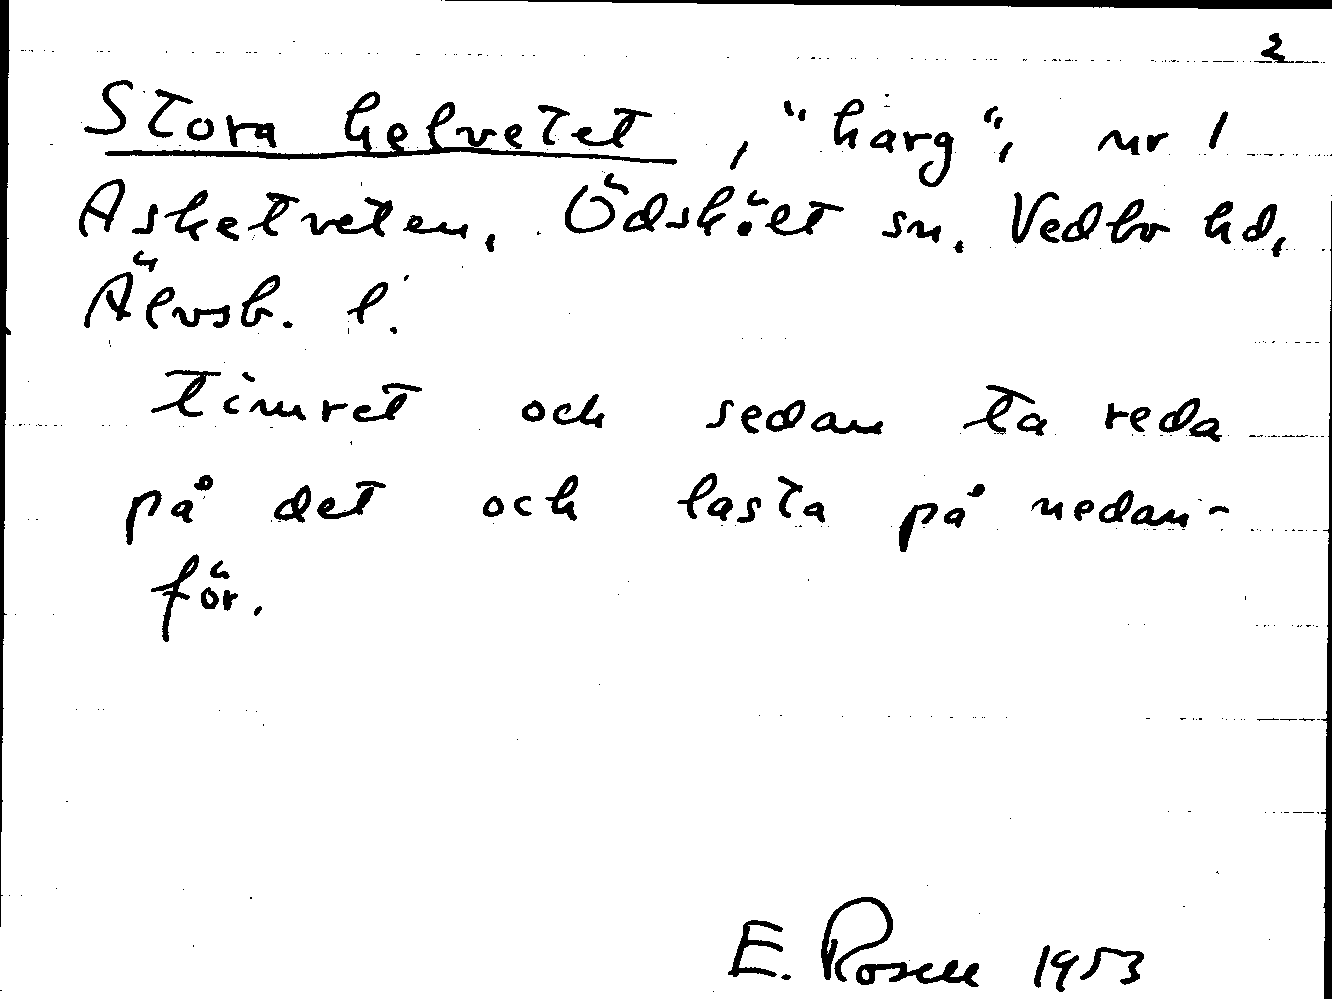 2
Stora helvetet, "harg", nr 1
Asketveten. Ödskölt sn. Vedbo hd,
Älvsb. l.
timret och sedan ta reda
på det och lasta på nedan-
för.
E. Rosell 1953